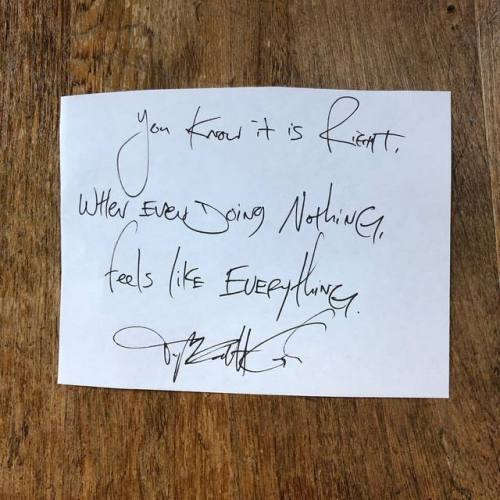 You Know it is Right.
When Even Doing Nothing,
feels like Everything.